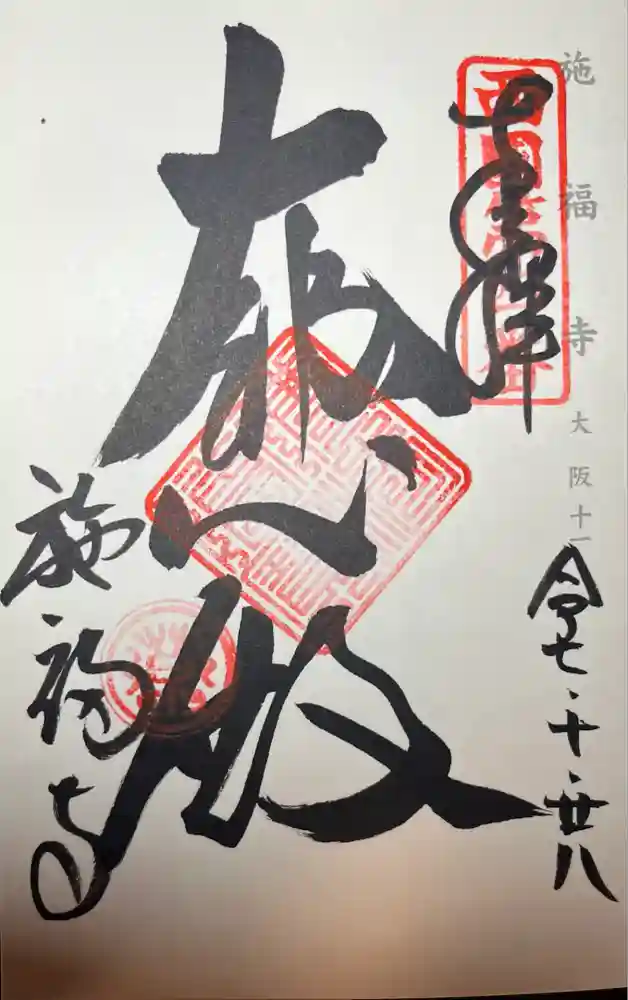 施福寺 大阪十一
西国第四番
奉拝
令七・十・廿八
大悲殿
施福寺